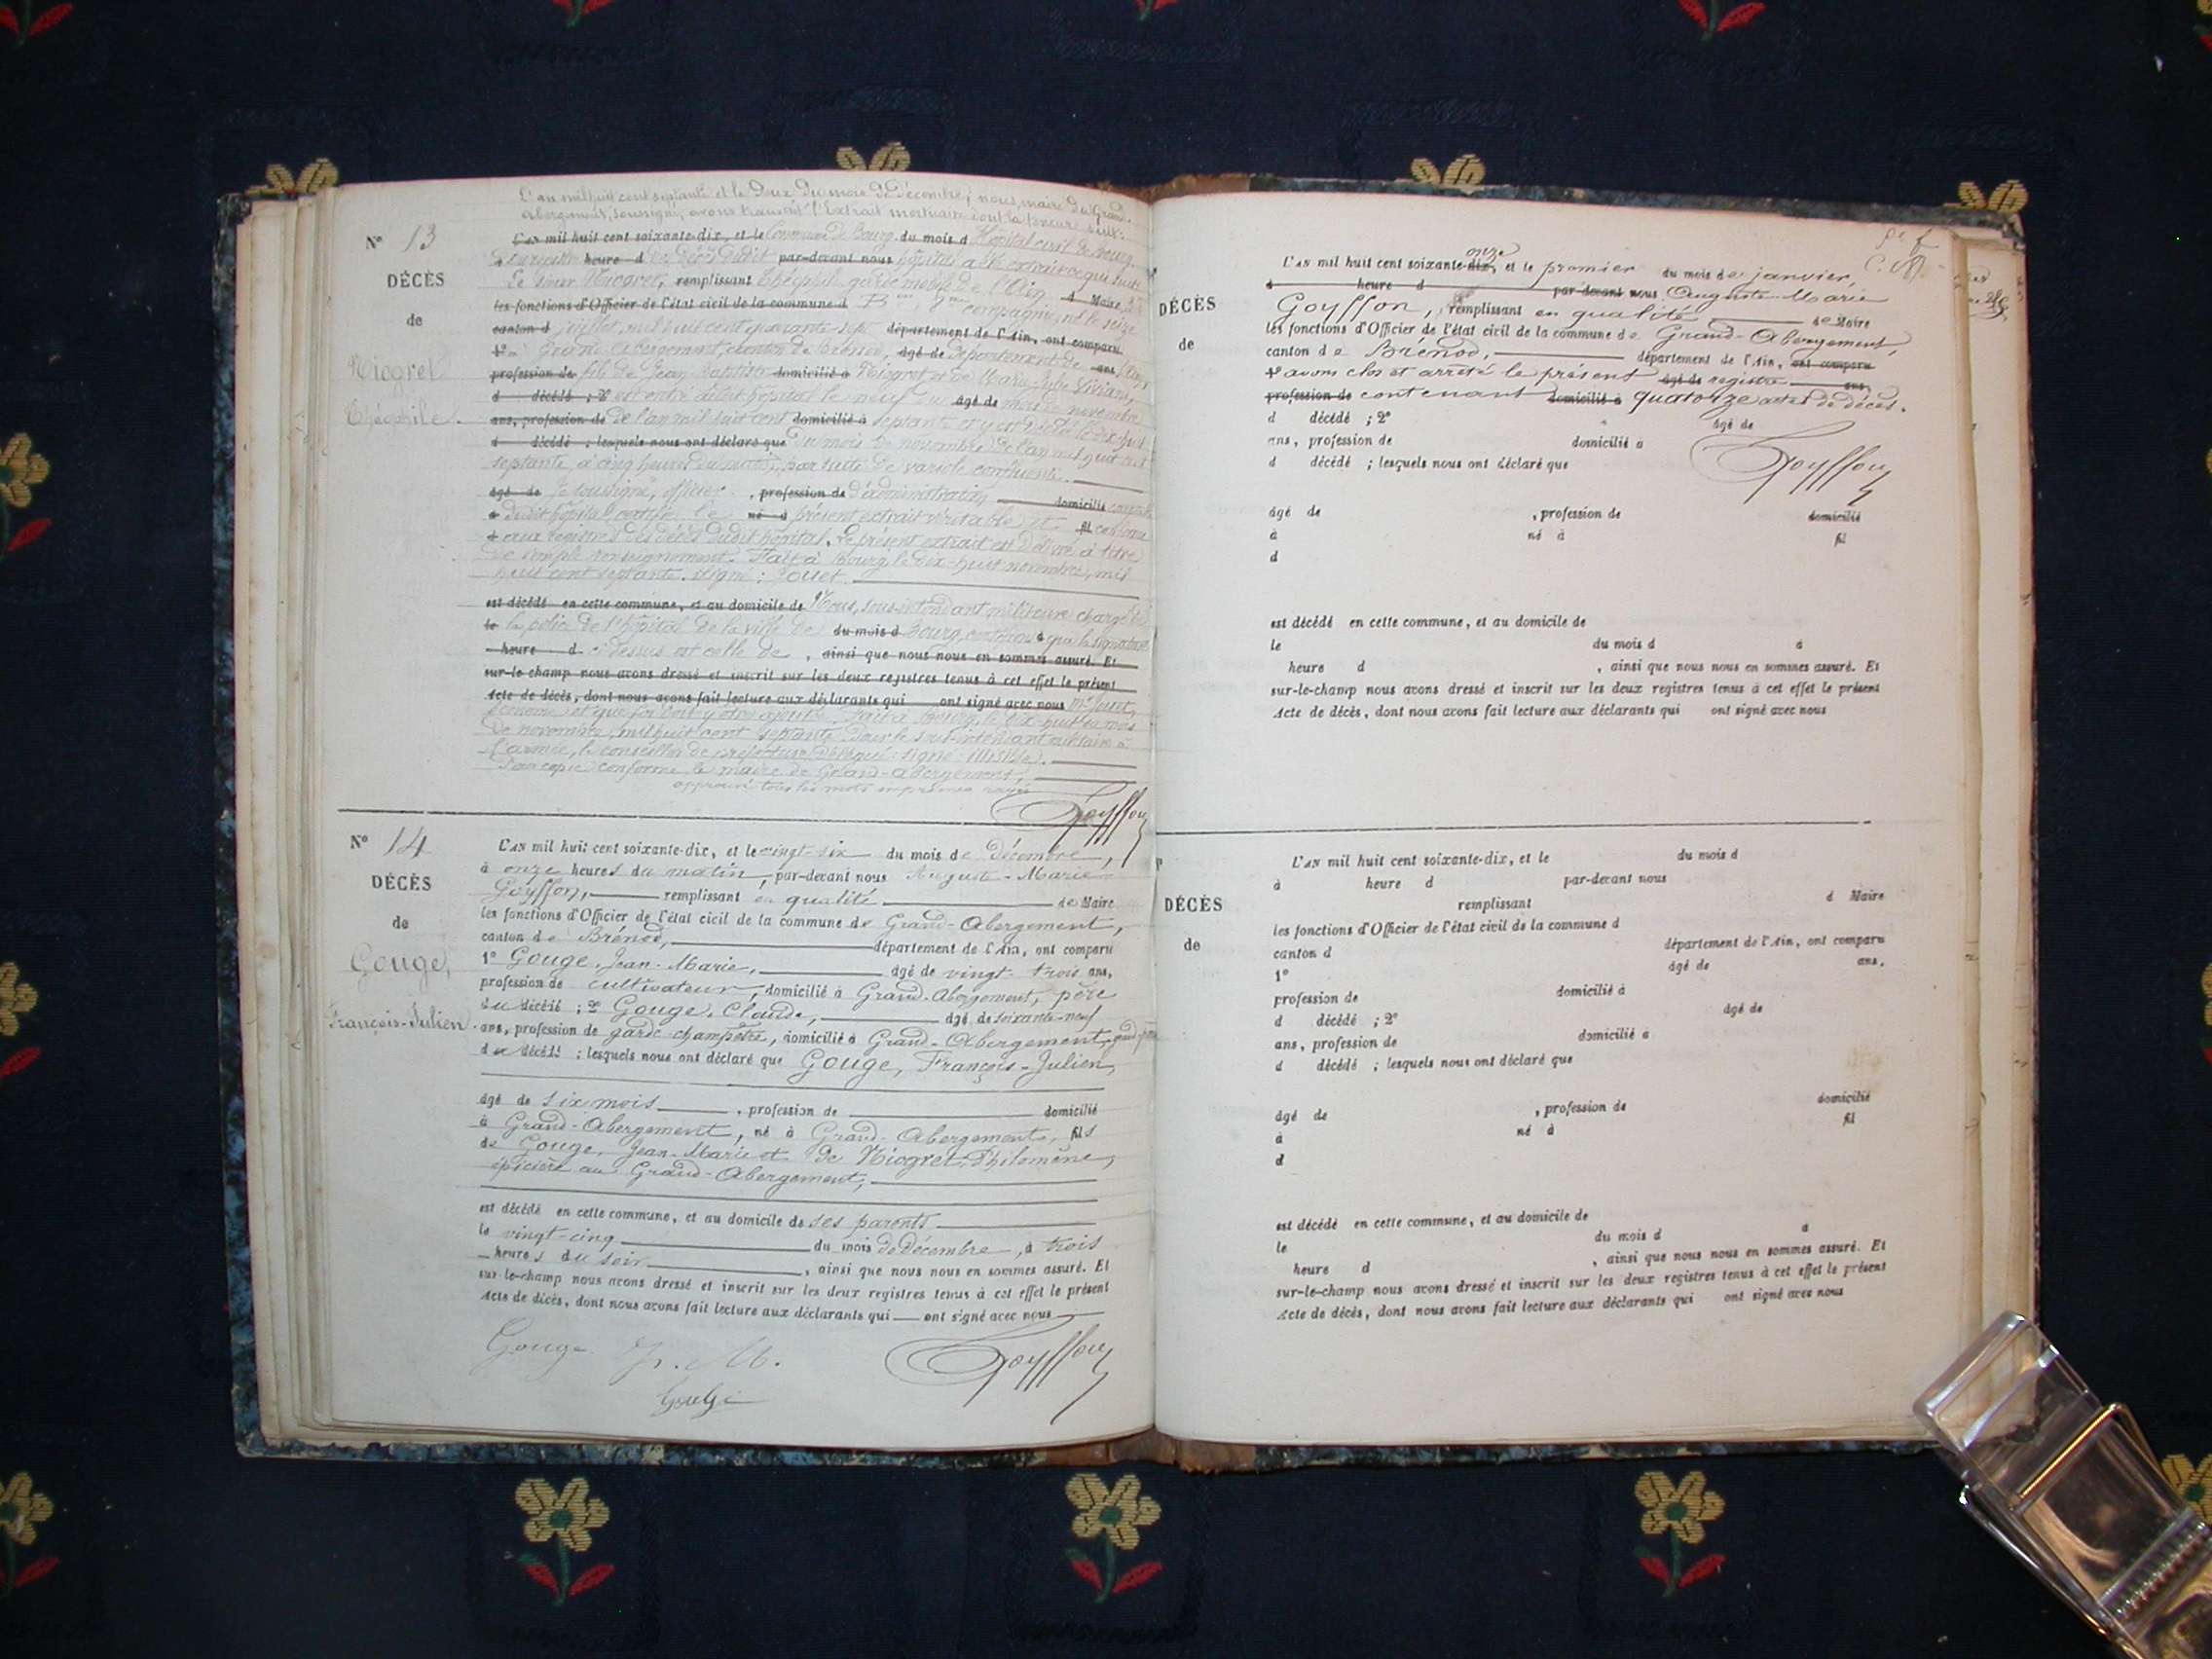 L'an mil huit cent septante et le deux du mois de décembre, nous, maire du Grand-
Abergement, soussigné, avons transcrit l'Extrait mortuaire dont la teneur suit:
N° 13
L'AN mil huit cent soixante-dix, et le Commune de Bourg. du mois d Hôpital civil de Bourg.
heure d par-devant nous
DÉCÈS
Le sieur Niogret, remplissant Théophile garde mobile de l'Ain d Maire
les fonctions d'Officier de l'état civil de la commune d compagnie, né le seize
de
canton d juillet, mil huit cent quarante-six département de l'Ain, ont comparu
1° à Grand-Abergement, canton de Brénod, âgé de département de ans,
Niogret
profession de fils de Jean-Baptiste domicilié à Niogret et de Marie
d décédé ; 2° est entré audit hôpital le neuf du âgé de mois de novembre
Théophile.
ans, profession de de l'an mil huit cent domicilié à septante et y est décédé le dix-huit
d décédé ; lesquels nous ont déclaré que du mois de novembre de l'an mil huit cent
septante, à cinq heures du matin, par suite de variole confluente.
âgé de Je soussigné, officier , profession de d'administration domicilié comptable
à dudit hôpital, certifie le né à présent extrait véritable et fil conforme
d aux registres des décès dudit hôpital. Le présent extrait est délivré à titre
de simple renseignement. Fait à Bourg, le dix-huit novembre, mil
huit cent septante. Signé :
est décédé en cette commune, et au domicile de Nous, sous-intendant militaire chargé de
le la police de l'hôpital de la ville de du mois d Bourg, certifions à que la signature
heure d ci-dessus est celle de , ainsi que nous nous en sommes assuré. Et
sur-le-champ nous avons dressé et inscrit sur les deux registres tenus à cet effet le présent
Acte de décès, dont nous avons fait lecture aux déclarants qui ont signé avec nous
économe et que foi doit y être ajoutée. Fait à Bourg, le dix-huit du mois
de novembre, mil huit cent septante. Pour le sous-intendant militaire à
l'armée, le conseiller de préfecture délégué: signé: illisible.
Pour copie conforme le maire de Grand-Abergement,
approuvé tous les mots imprimés rayés
Goyffon
N° 14
L'AN mil huit cent soixante-dix, et le vingt-six du mois de décembre,
à onze heures du matin, par-devant nous Auguste-Marie
DÉCÈS
Goyffon, remplissant en qualité de Maire
les fonctions d'Officier de l'état civil de la commune de Grand-Abergement,
de
canton de Brénod, département de l'Ain, ont comparu
Gouge,
1° Gouge, Jean-Marie, âgé de vingt-trois ans,
profession de cultivateur, domicilié à Grand-Abergement, père
du décédé ; 2° Gouge, Claude, âgé de soixante-neuf
François-Julien.
ans, profession de garde-champêtre, domicilié à Grand-Abergement, grand-père
du décédé ; lesquels nous ont déclaré que Gouge, François-Julien,
âgé de six mois , profession de domicilié
à Grand-Abergement, né à Grand-Abergement, fils
de Gouge, Jean-Marie et de Niogret, Philomène,
épicière au Grand-Abergement,
est décédé en cette commune, et au domicile de ses parents
le vingt-cinq du mois de Décembre, à trois
heures du soir , ainsi que nous nous en sommes assuré. Et
sur-le-champ nous avons dressé et inscrit sur les deux registres tenus à cet effet le présent
Acte de décès, dont nous avons fait lecture aux déclarants qui ont signé avec nous
Gouge J. M.
Goyffon
Gouge
onze
L'AN mil huit cent soixante-dix, et le premier du mois de janvier,
à heure d par-devant nous Auguste-Marie
DÉCÈS
Goyffon, remplissant en qualité de Maire
les fonctions d'Officier de l'état civil de la commune de Grand-Abergement,
de
canton de Brénod, département de l'Ain, ont comparu
1° avons clos et arrêté le présent âgé de registre ans,
profession de contenant domicilié à quatorze actes de décès.
d décédé ; 2° âgé de
ans, profession de domicilié à
d décédé ; lesquels nous ont déclaré que
Goyffon
âgé de , profession de domicilié
à né à fil
d
est décédé en cette commune, et au domicile de
le du mois d à
heure d , ainsi que nous nous en sommes assuré. Et
sur-le-champ nous avons dressé et inscrit sur les deux registres tenus à cet effet le présent
Acte de décès, dont nous avons fait lecture aux déclarants qui ont signé avec nous
L'AN mil huit cent soixante-dix, et le du mois d
à heure d par-devant nous
DÉCÈS
remplissant d Maire
les fonctions d'Officier de l'état civil de la commune d
de
canton d département de l'Ain, ont comparu
1° âgé de ans,
profession de domicilié à
d décédé ; 2° âgé de
ans, profession de domicilié à
d décédé ; lesquels nous ont déclaré que
âgé de , profession de domicilié
à né à fil
d
est décédé en cette commune, et au domicile de
le du mois d à
heure d , ainsi que nous nous en sommes assuré. Et
sur-le-champ nous avons dressé et inscrit sur les deux registres tenus à cet effet le présent
Acte de décès, dont nous avons fait lecture aux déclarants qui ont signé avec nous